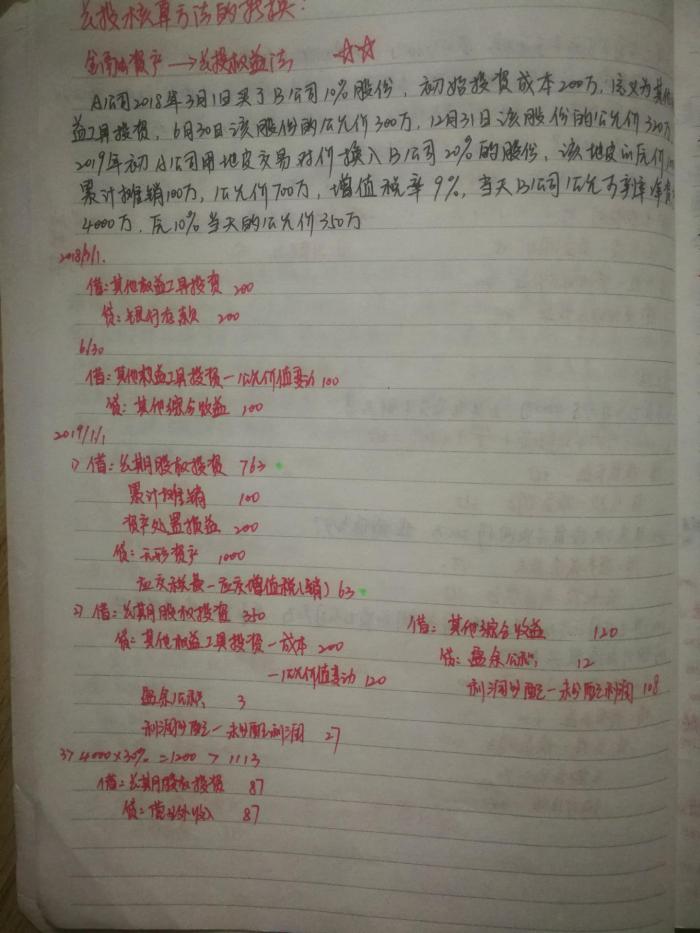 长投核算方法的转换:
金融资产 → 长投权益法 ☆☆
A公司2018年3月1日买了B公司10%股份, 初始投资成本200万, 定义为其他
益工具投资, 6月30日该股份的公允价300万, 12月31日该股份的公允价320万
2019年初A公司用地皮交易对价换入B公司20%的股份, 该地皮的原价
累计摊销100万, 公允价700万, 增值税率9%, 当天B公司公允可辨净资
4000万, 原10%当天的公允价350万
2018/3/1.
借:其他权益工具投资 200
贷:银行存款 200
6/30
借:其他权益工具投资-公允价值变动 100
贷:其他综合收益 100
2019/1/1
1) 借:长期股权投资 763
累计摊销 100
资产处置损益 200
贷:无形资产 1000
应交税费-应交增值税(销) 63
2) 借:长期股权投资 350
贷:其他权益工具投资-成本 200
-公允价值变动 120
盈余公积 3
利润分配-未分配利润 27
借:其他综合收益 120
贷:盈余公积 12
利润分配-未分配利润 108
3) 4000×30% = 1200 > 1113
借:长期股权投资 87
贷:营业外收入 87